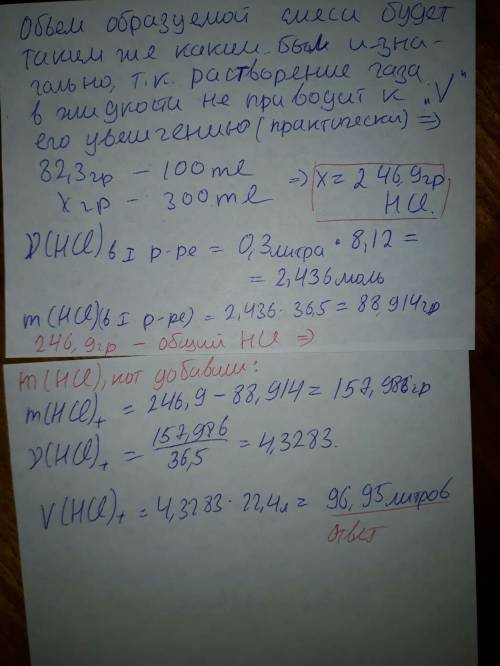 Объем образуемой смеси будет
таким же каким был изна-
чально, т.к. растворение газа
в жидкости не приводит к "V"
его увеличению (практически) =>
82,3гр - 100ml
Xгр - 300ml
=> X = 246,9гр
HCl.
ν(HCl) в I р-ре = 0,3литра · 8,12 =
= 2,436моль
m(HCl)(в I р-ре) = 2,436 · 36,5 = 88,914гр
246,9гр - общий HCl =>
m(HCl), кот добавили:
m(HCl)+ = 246,9 - 88,914 = 157,986гр
ν(HCl)+ = 157,986/36,5 = 4,3283.
V(HCl)+ = 4,3283 · 22,4л = 96,95литров
ответ